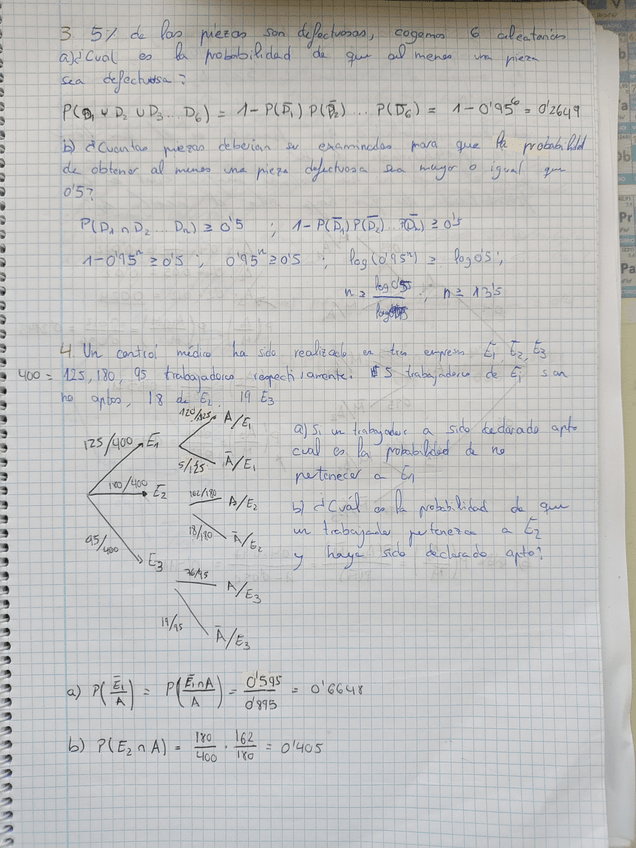 3 5% de las piezas son defectuosas, cogemos 6 aleatorias
a) ¿Cual es la probabilidad de que al menos una pieza
sea defectuosa?
P(D₁ ∪ D₂ ∪ D₃... D₆) = 1 - P(D̄₁) P(D̄₂) ... P(D̄₆) = 1 - 0'95⁶ = 0'2649
b) ¿Cuantas piezas deberian ser examinadas para que la probabilidad
de obtener al menos una pieza defectuosa sea mayor o igual que
0'5?
P(D₁ ∩ D₂ ... Dₙ) ≥ 0'5 ; 1 - P(D̄₁) P(D̄₂) P(D̄ₙ) ≥ 0'5
1 - 0'95ⁿ ≥ 0'5 ; 0'95ⁿ ≥ 0'5 ; log(0'95ⁿ) ≥ log 0'5 ;
n ≥ log / log ; n ≥ 13'5
4. Un control médico ha sido realizado en tres empresas E₁ E₂, E₃
400 = 125, 180, 95 trabajadores respectivamente. 5 trabajadores de E₁ son
no aptos, 18 de E₂, 19 E₃
120/125 A/E₁
125/400 E₁
5/125 Ā/E₁
180/400 E₂
162/180 A/E₂
18/180 Ā/E₂
95/400 E₃
76/95 A/E₃
19/95 Ā/E₃
a) Si un trabajador a sido declarado apto
cual es la probabilidad de no
pertenecer a E₁
b) ¿Cuál es la probabilidad de que
un trabajador pertenezca a E₂
y haya sido declarado apto?
a) P(Ē₁/A) = P(Ē₁∩A/A) = 0'595/0'895 = 0'6648
b) P(E₂ ∩ A) = 180/400 · 162/180 = 0'405